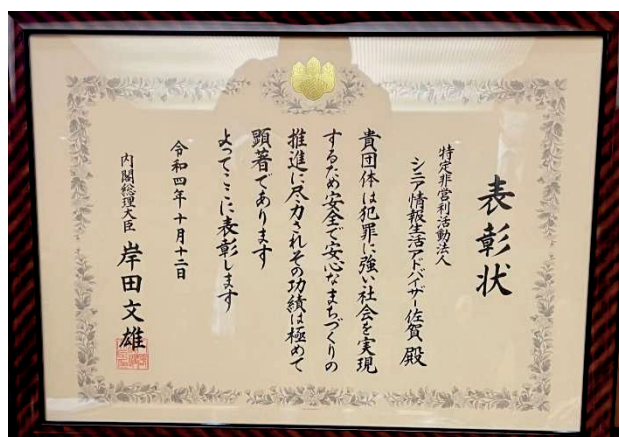 表彰状
特定非営利活動法人
シニア情報生活アドバイザー佐賀 殿
貴団体は犯罪に強い社会を実現
するため安全で安心なまちづくりの
推進に尽力されその功績は極めて
顕著であります
よってここに表彰します
令和四年十月十二日
内閣総理大臣 岸田文雄